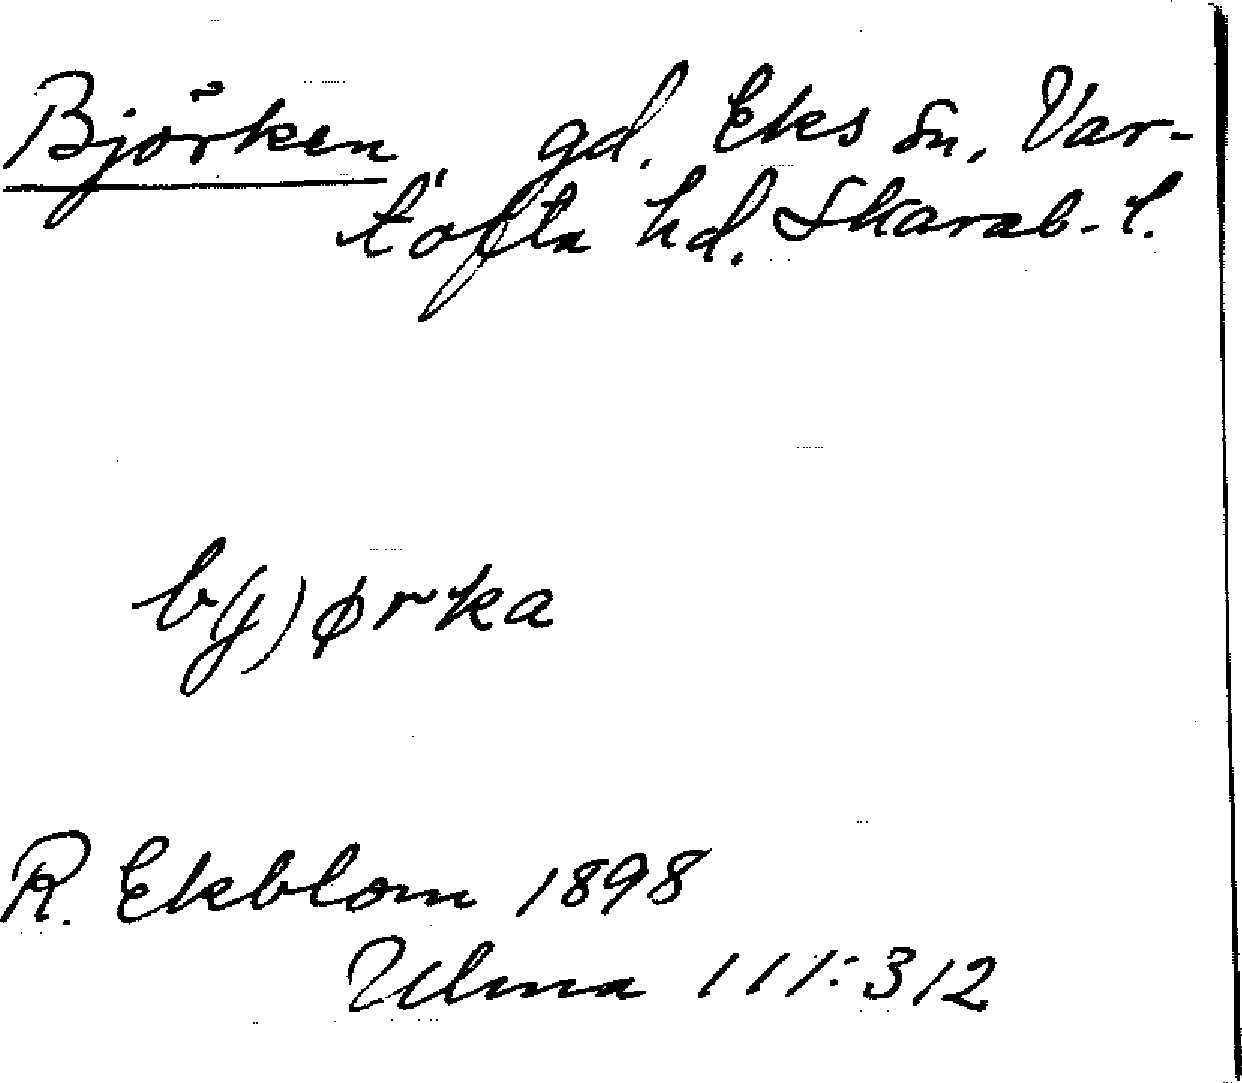 Björken gd. Eks sn, Var-
töfta hd. Skarab. l.
b(j)ørka
R. Ekblom 1898
Ulma 111:312